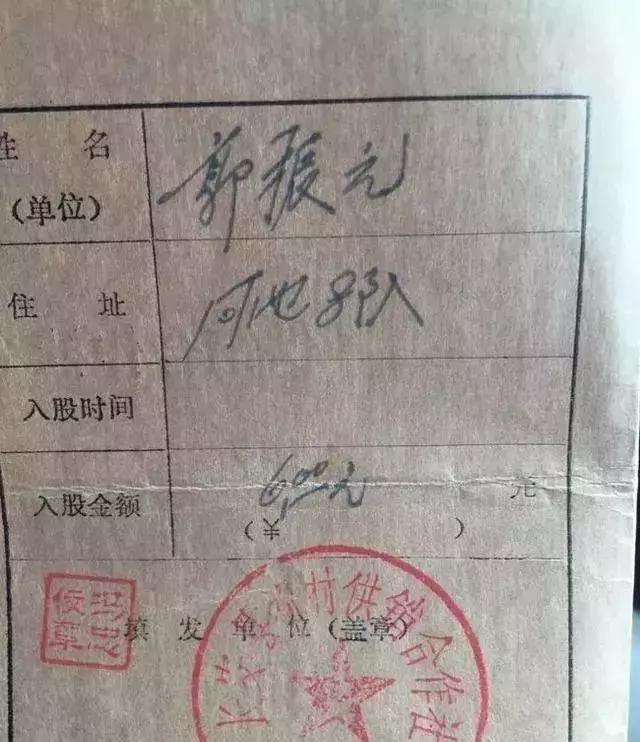 姓 名
(单位)
郭振元
住 址
河池8队
入股时间
入股金额
6.00元
元
(¥ )
填发单位(盖章)
村供销合作社